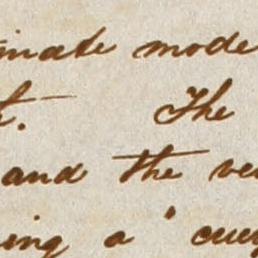 inate mode
t. The
and the ve
ing a '